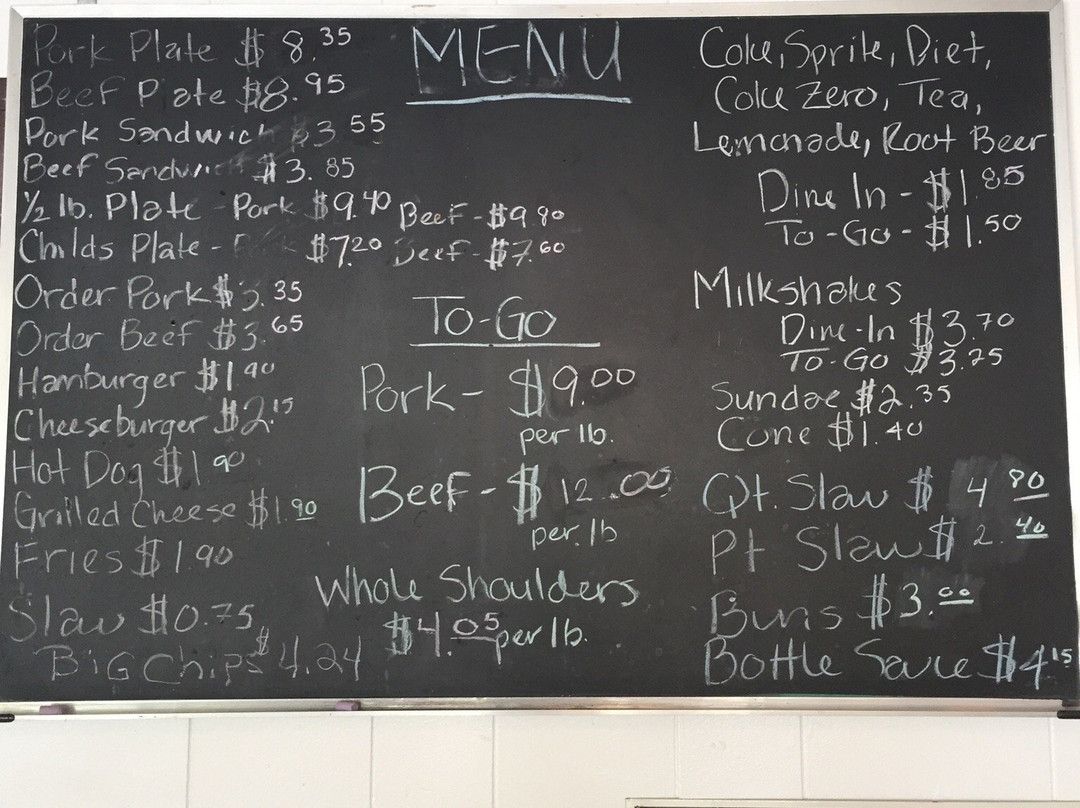 MENU
Pork Plate $8.35
Beef Plate $8.95
Pork Sandwich $3.55
Beef Sandwich $3.85
1/2 lb. Plate - Pork $9.40 Beef - $9.80
Childs Plate - $7.20 Beef - $7.60
Order Pork $3.35
Order Beef $3.65
Hamburger $1.90
Cheeseburger $2.15
Hot Dog $1.90
Grilled Cheese $1.90
Fries $1.90
Slaw $0.75
BIG Chips $4.24
To-Go
Pork - $9.00
per lb.
Beef - $12.00
per. lb
Whole Shoulders
$4.05 per lb.
Coke, Sprite, Diet,
Coke Zero, Tea,
Lemonade, Root Beer
Dine In - $1.85
To-Go - $1.50
Milkshakes
Dine-In $3.70
To-Go $3.25
Sundae $2.35
Cone $1.40
Qt. Slaw $4.80
Pt Slaw $2.40
Buns $3.00
Bottle Sauce $4.15